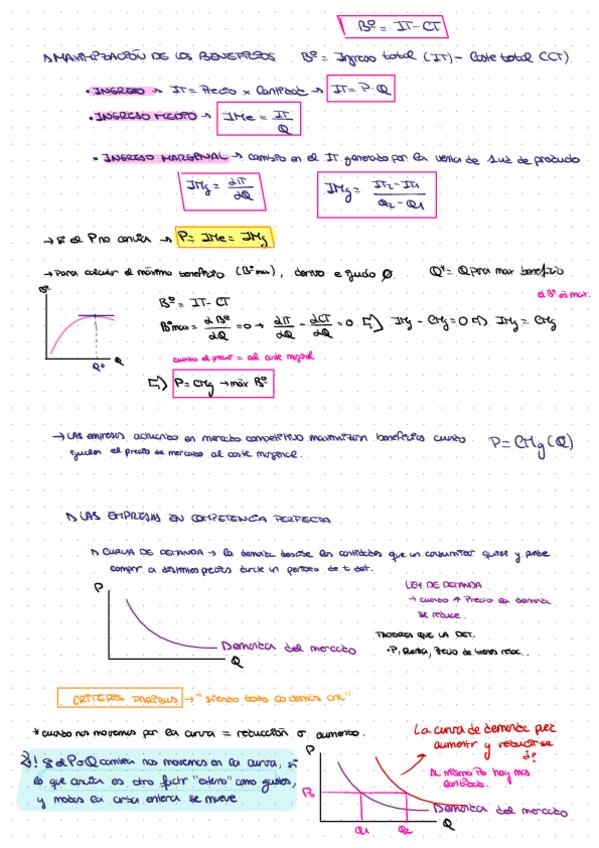 Bº = IT - CT
MAXIMIZACIÓN DE LOS BENEFICIOS Bº = Ingreso total (IT) - Coste total (CT)
• INGRESO → IT = Precio x Cantidad → IT = P·Q
• INGRESO MEDIO → IMe = IT / Q
• INGRESO MARGINAL → cambio en el IT generado por la venta de 1 ud de producto
IMg = dIT / dQ IMg = IT2 - IT1 / Q2 - Q1
→ si el P no cambia → P = IMe = IMg
→ Para calcular el máximo beneficio (Bº max), derivo e igualo 0 Q* = Q para max beneficio
el Bº es max.
Bº
Bº = IT - CT
Bº max = d Bº / dQ = 0 → dIT / dQ - dCT / dQ = 0 IMg - CMg = 0 IMg = CMg
Q* Q
cuando el precio = al coste marginal
P = CMg → máx Bº
→ Las empresas actuando en mercado competitivo maximizan beneficios cuando P = CMg (Q)
igualan el precio de mercado al coste marginal.
LAS EMPRESAS EN COMPETENCIA PERFECTA
CURVA DE DEMANDA → la demanda describe las cantidades que un consumidor quiere y puede
comprar a distintos precios durante un periodo de t det.
LEY DE DEMANDA
→ cuando ↑ Precio la demanda
se reduce.
P
Demanda del mercado
Q
FACTORES QUE LA DET.
• P, Renta, Precio de bienes relac..
CETERIS PARIBUS → "siendo todo lo demás cte"
* cuando nos movemos por la curva = reducción o aumento.
La curva de demanda puede
aumentar y reducirse
! Si el P o Q cambia nos movemos en la curva, si
lo que cambia es otro factor "externo" como gustos,
y modas la curva entera se mueve.
P
Al mismo Po hay mas
cantidad.
Po
Demanda del mercado
Q1 Q2 Q